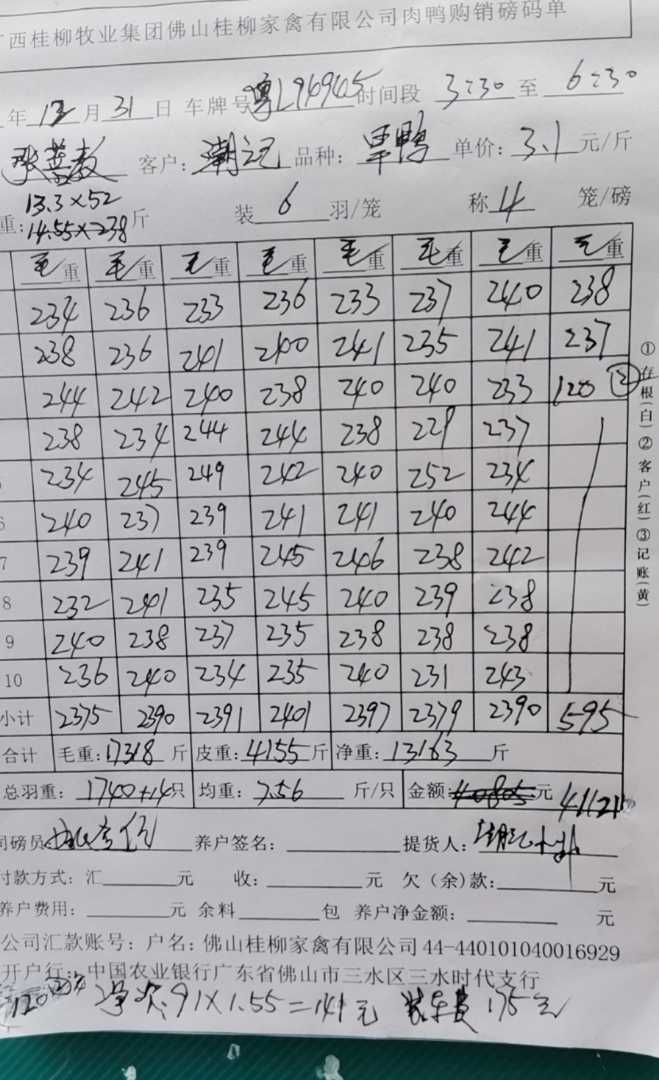 广西桂柳牧业集团佛山桂柳家禽有限公司肉鸭购销磅码单
年 12 月 31 日 车牌号 粤L94945 时间段 3:30 至 6:30
客户: 潮记 品种: 旱鸭 单价: 3.1 元/斤
13.3×52
重: 14.55×238 斤 装 6 羽/笼 称 4 笼/磅
毛重 毛重 毛重 毛重 毛重 毛重 毛重 毛重
234 236 233 236 233 237 240 238
238 236 241 240 241 235 241 237
244 242 240 238 240 240 233 120 ②
238 234 244 244 238 229 237
234 245 249 242 240 252 234
6 240 237 239 241 241 240 244
7 239 241 239 245 246 238 242
8 232 241 235 245 240 239 238
9 240 238 237 235 238 238 238
10 236 240 234 235 240 231 243
小计 2375 2390 2391 2401 2397 2379 2390 595
合计 毛重: 17318 斤 皮重: 4155 斤 净重: 13163 斤
总羽重: 1740+14 只 均重: 7.56 斤/只 金额: 40805 元 41121
司磅员 养户签名: 提货人:
付款方式: 汇 元 收: 元 欠(余)款: 元
养户费用: 元 余料 包 养户净金额: 元
公司汇款账号: 户名: 佛山桂柳家禽有限公司 44-440101040016929
开户行: 中国农业银行广东省佛山市三水区三水时代支行
120 净欠: 91×1.55=141元 装车费 175元
①存根(白)②客户(红)③记账(黄)